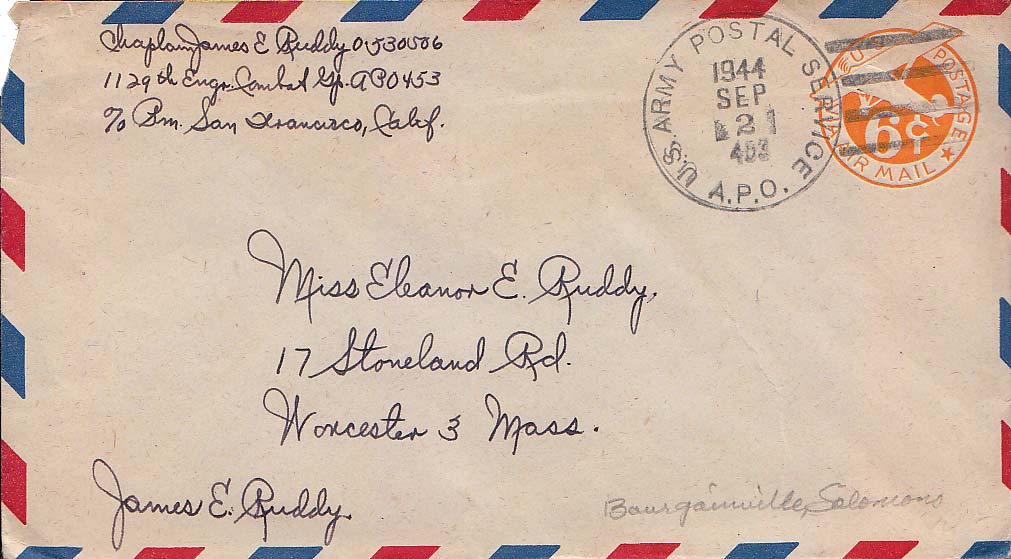 Chaplain James E Ruddy O-530506
1129th Engr. Combat Gp. APO 453
℅ Pm. San Francisco, Calif.
U.S. ARMY POSTAL SERVICE
1944
SEP
21
453
A.P.O.
U.S. POSTAGE
6¢
AIR MAIL
Miss Eleanor E. Ruddy.
17 Stoneland Rd.
Worcester 3 Mass.
James E. Ruddy
Bourgainville, Solomons